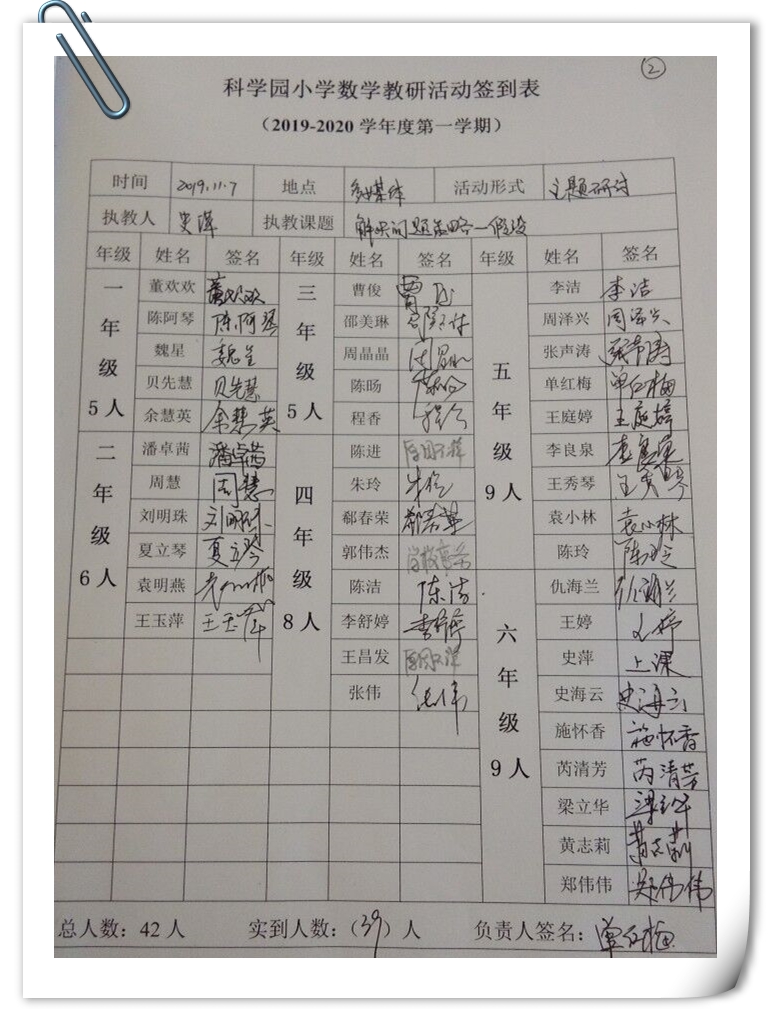 ②
科学园小学数学教研活动签到表
（2019-2020 学年度第一学期）
时间 2019.11.7 地点 多媒体 活动形式 主题研讨
执教人 史萍 执教课题 解决问题策略—假设
年级 姓名 签名 年级 姓名 签名 年级 姓名 签名
一年级5人 董欢欢 董欢欢 三年级5人 曹俊 五年级9人 李洁 李洁
陈阿琴 陈阿琴 邵美琳 周泽兴 周泽兴
魏星 魏星 周晶晶 张声涛 张声涛
贝先慧 贝先慧 陈旸 单红梅 单红梅
余慧英 余慧英 程香 王庭婷 王庭婷
二年级6人 潘卓茜 潘卓茜 四年级8人 陈进 李良泉
周慧 周慧 朱玲 王秀琴 王秀琴
刘明珠 刘明珠 郗春荣 袁小林 袁小林
夏立琴 夏立琴 郭伟杰 陈玲 陈玲
袁明燕 陈洁 陈洁 六年级9人 仇海兰 仇海兰
王玉萍 王玉萍 李舒婷 李舒婷 王婷 王婷
王昌发 史萍 上课
张伟 张伟 史海云 史海云
施怀香 施怀香
芮清芳 芮清芳
梁立华 梁立华
黄志莉 黄志莉
郑伟伟 郑伟伟
总人数：42 人 实到人数：（39）人 负责人签名：单红梅